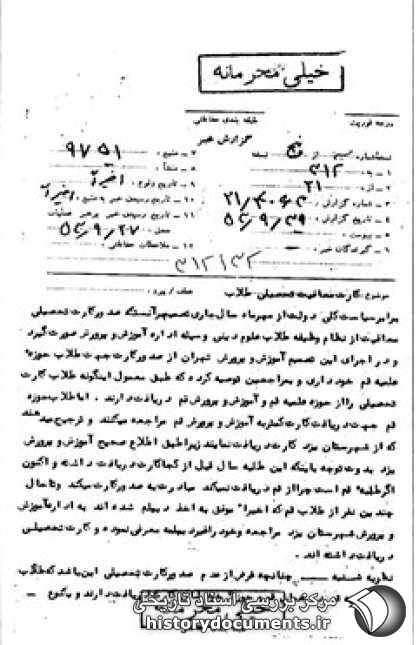 خیلی محرمانه
طبقه بندی حفاظتی
درجه فوریت
گزارش خبر
۱ - به ۳۱۲
۷ - منبع : ۹۷۵۱
۲ - از ۲۱
۸ - منشأ :
۳ - شماره گزارش :
۹ - تاریخ وقوع : اخیراً
۴ - تاریخ گزارش :
۱۰ - تاریخ رسیدن خبر به منبع : اخیراً
۵ - پیوست :
۱۱ - تاریخ رسیدن خبر به رهبر عملیات
۶ - گیرندگان خبر :
محل :
۱۲ - ملاحظات حفاظتی :
موضوع : کارت معافیت تحصیلی طلاب
برابر سیاست کلی دولت از مهرماه سال جاری تصمیم بر آنستکه صدور کارت تحصیلی
معافیت از نظام وظیفه طلاب علوم دینی وسیله اداره آموزش و پرورش صورت گیرد
و در اجرای این تصمیم آموزش و پرورش تهران از صدور کارت جهت طلاب حوزه
علمیه قم خودداری و بمراجعین توصیه کرده که طبق معمول اینگونه طلاب کارت
تحصیلی را از حوزه علمیه قم و آموزش و پرورش قم دریافت دارند . اما طلاب حوزه
قم جهت دریافت کارت کمتر به آموزش و پرورش قم مراجعه میکنند و ترجیح میدهند
که از شهرستان یزد کارت دریافت نمایند زیرا طبق اطلاع صحیح آموزش و پرورش
یزد بدون توجه باینکه این طلبه سال قبل از کجا کارت دریافت داشته و اکنون
اگر طلبه قم است چرا از قم دریافت نمیکند مبادرت به صدور کارت میکند و تا حال
چندین نفر از طلاب قم که اخیرا موفق به اخذ دیپلم شده اند به اداره آموزش
و پرورش شهرستان یزد مراجعه و خود را فیر دیپلمه معرفی نموده و کارت تحصیلی
دریافت داشته اند .
نظریه شنبه چنانچه غرض از عدم صدور کارت تحصیلی این باشد که طلاب
دریافت دارند و بکوع
خیلی محرمانه
مرکز بررسی اسناد تاریخی
historydocuments.ir